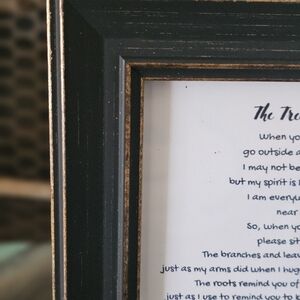 The Tre
When yo
go outside a
I may not be
but my spirit is
I am everyw
near
So, when yo
please sit
The branches and leav
just as my arms did when I hug
The roots remind you of
just as I use to remind you to